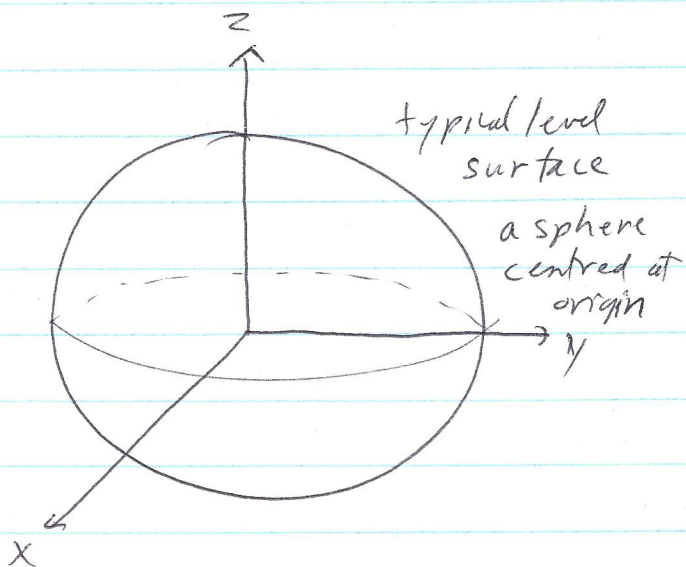 z
typical level
surface
a sphere
centred at
origin
y
x